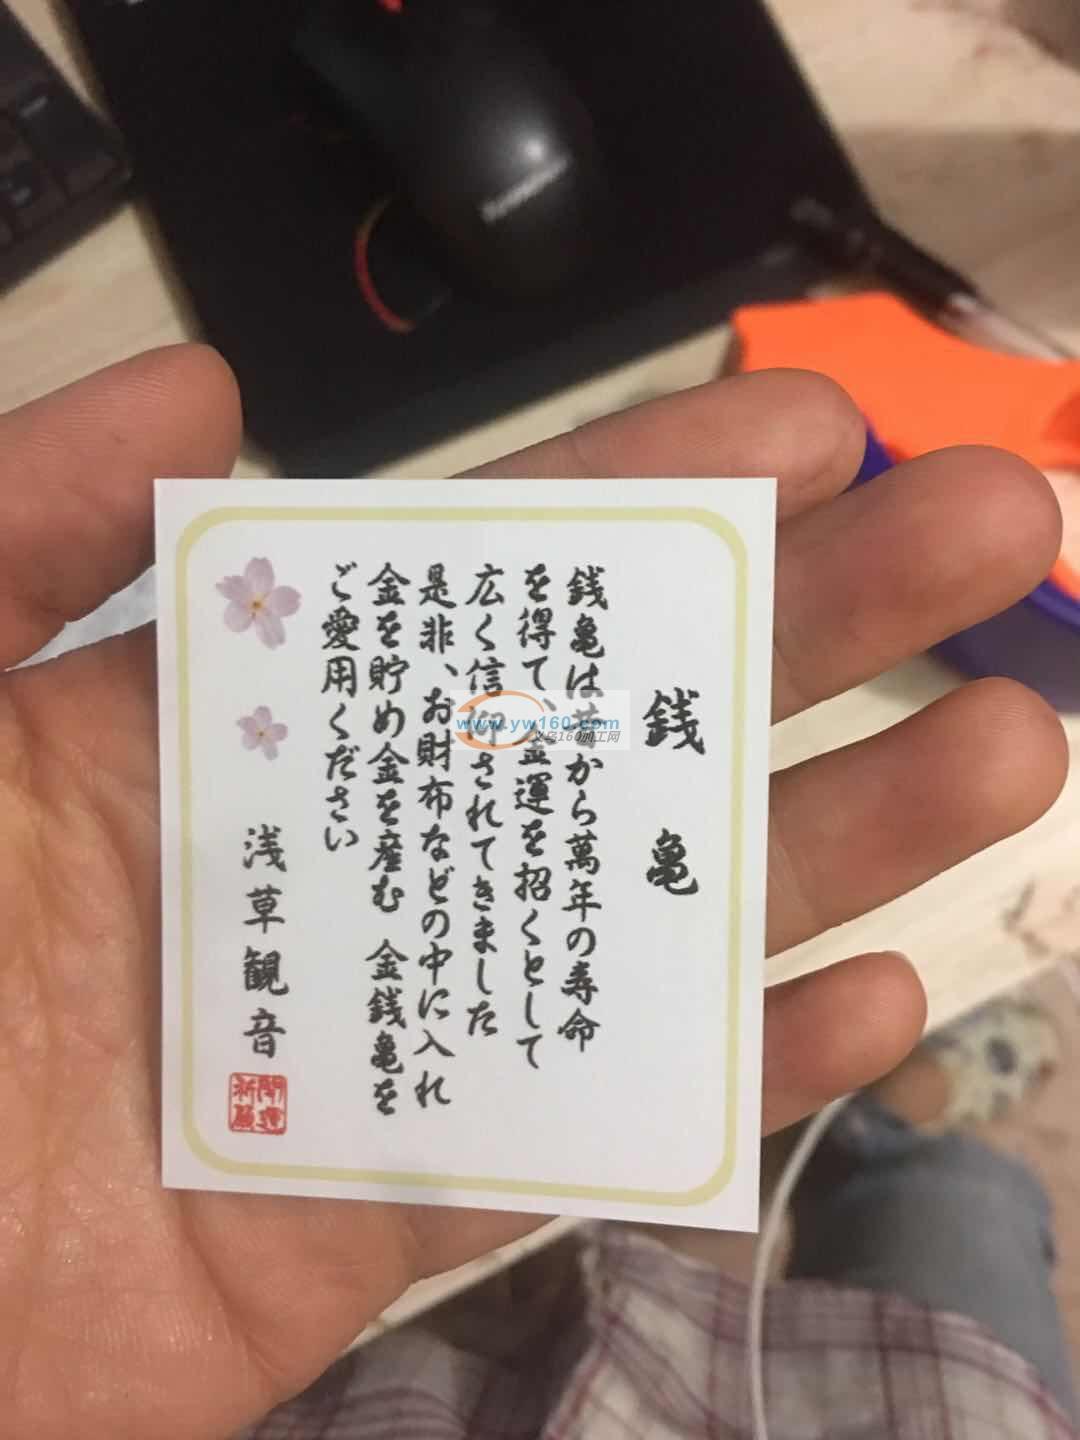 銭亀
銭亀は昔から萬年の寿命
を得て、金運を招くとして
広く信仰されてきました
是非、お財布などの中に入れ
金を貯め金を産む 金銭亀を
ご愛用ください
浅草観音
開運
祈願
www.yw160.com
义乌160加工网